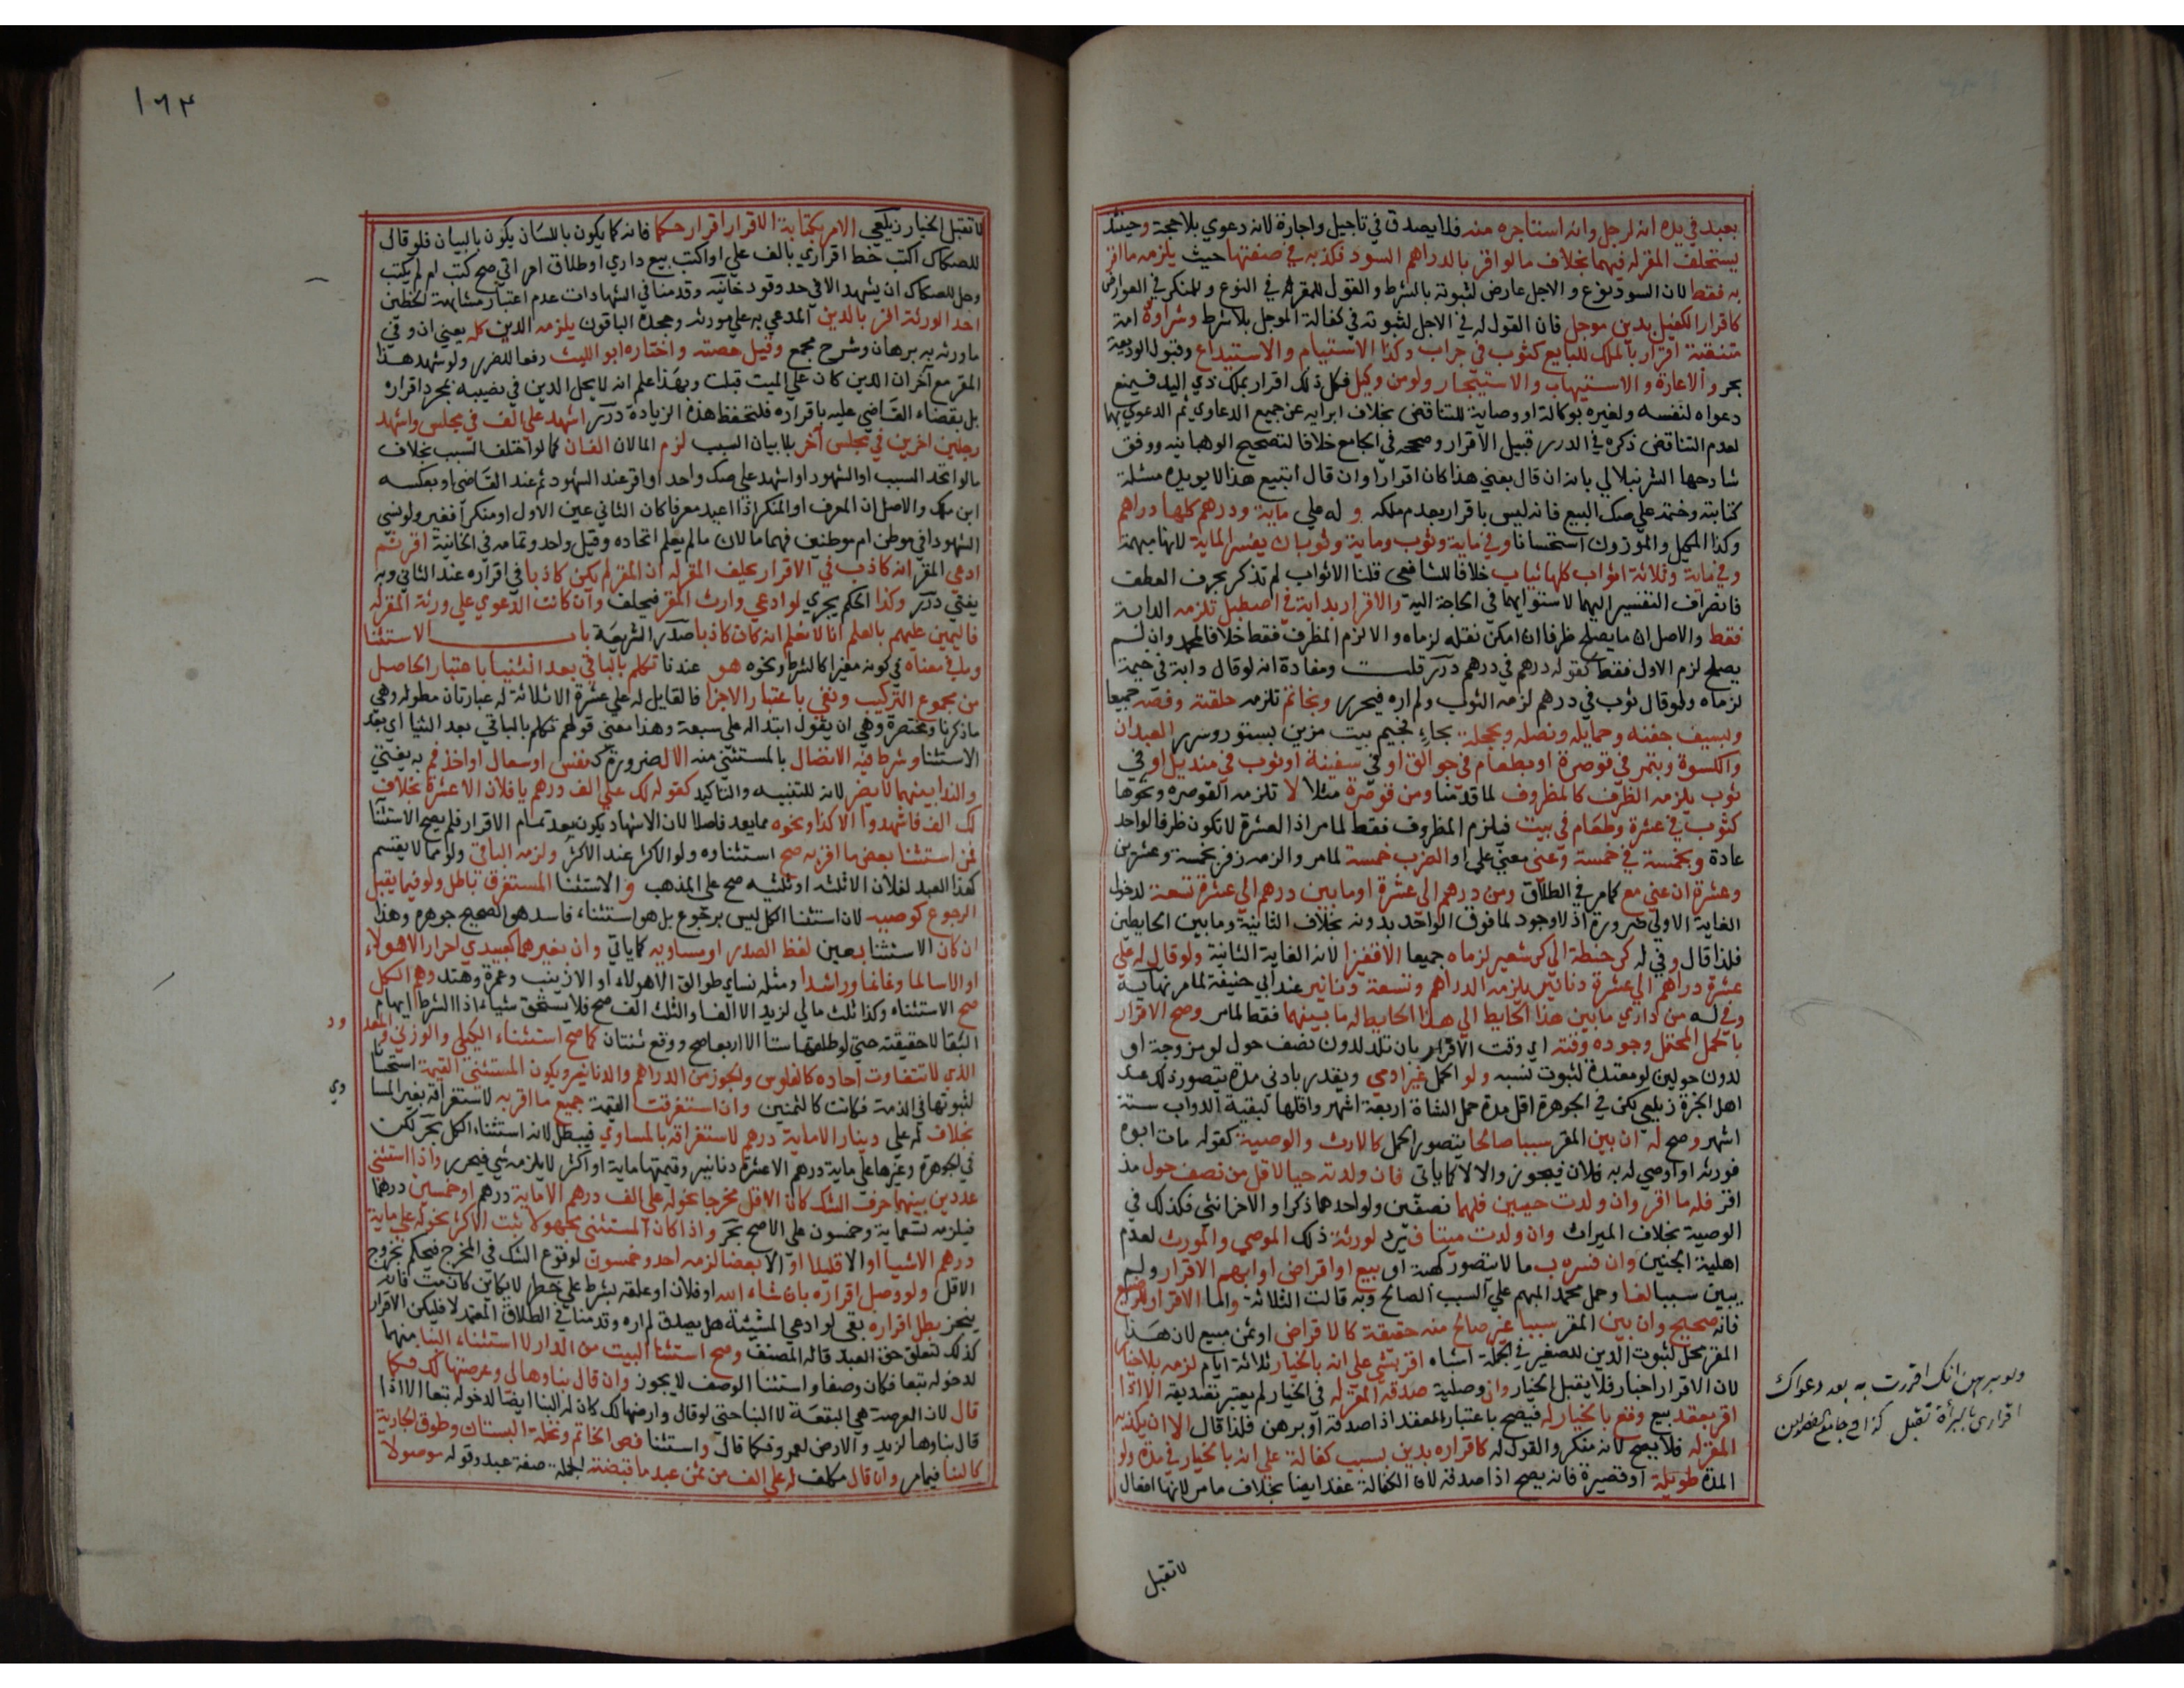 بعبد في يده انه لرجل وانه استاجره منه فلا يصدق في تاجيل واجارة لانه دعوي بلا حجة وحينئذ
يستحلف المقر له فيهما بخلاف ما لو اقر بالدراهم السود فكذبه في صفتها حيث يلزمه ما اقر
به فقط لان السود نوع والاجل عارض لثبوته بالشرط والقول للمقر في النوع وللمنكر في العوارض
كاقرار الكفيل بدين موجل فان القول له في الاجل لثبوته في كفالة الموجل بلا شرط وشراوه امة
متنقبة اقرار بالملك للبايع كثوب في جراب وكذا الاستيام والاستيداع وقبول الوديعة
بحر والاعارة والاستيهاب والاستيجار ولو من وكيل فكل ذلك اقرار بملك ذي اليد فيمنع
دعواه لنفسه ولغيره بوكالة او وصاية للتناقض بخلاف ابرايه عن جميع الدعاوي ثم الدعوي بها
لعدم التناقض ذكره في الدرر قبيل الاقرار وصححه في الجامع خلافا لتصحيح الوهبانيه ووفق
شارحها الشرنبلالي بانه ان قال بعني هذا كان اقرارا وان قال اتبيع هذا لا يويده مسئلة
كتابته وختمه علي صك البيع فانه ليس باقرار بعدم ملكه و له علي ماية ودرهم كلها دراهم
وكذا المكيل والموزون استحسانا وفي ماية وثوب وماية وثوبان يفسر الماية لانها مبهمة
وفي ماية وثلاثة اثواب كلها ثياب خلافا للشافعي قلنا الاثواب لم تذكر بحرف العطف
فانصراف التفسير اليهما لاستوايهما في الحاجة اليه والاقرار بدابة في اصطبل تلزمه الدابة
فقط والاصل ان ما يصلح ظرفا ان امكن نقله لزماه والا لزم المظرف فقط خلافا لمحمد وان لم
يصلح لزم الاول فقط كقوله درهم في درهم درر قلت ومفاده انه لو قال دابة في خيمة
لزماه ولو قال ثوب في درهم لزمه الثوب ولم اره فيحرر وبخاتم تلزمه حلقته وفصه جميعا
وبسيف جفنه وحمايله ونصله وبحجلة بحاء فجيم بيت مزين بستور وسرر العيدان
والكسوة وبتمر في قوصرة او بطعام في جوالق او في سفينة او ثوب في منديل او في
ثوب يلزمه الظرف كالمظروف لما قدمنا ومن قوصرة مثلا لا تلزمه القوصره ونحوها
كثوب في عشرة وطعام في بيت فيلزم المظروف فقط لما مر اذ العشرة لا تكون ظرفا لواحد
عادة وبخمسة في خمسة وعني معني علي او الضرب خمسة لما مر والزمه زفر بخمسة وعشرين
وعشرة ان عني مع كما مر في الطلاق ومن درهم الي عشرة او ما بين درهم الي عشرة تسعة لدخول
الغاية الاولي ضرورة اذ لا وجود لما فوق الواحد بدونه بخلاف الثانية وما بين الحايطين
فلذا قال وفي له كر حنطة الي كر شعير لزماه جميعا الا قفيزا لانه الغاية الثانية ولو قال له علي
عشرة دراهم الي عشرة دنانير يلزمه الدراهم وتسعة دنانير عند ابي حنيفة لما مر نهاية
وفي له من داري ما بين هذا الحايط الي هذا الحايط له ما بينهما فقط لما مر وصح الاقرار
بالحمل المحتمل وجوده وقته اي وقت الاقرار بان تلد لدون نصف حول لو مزوجة او
لدون حولين لو معتدة لثبوت نسبه ولو الحمل غير ادمي ويقدر بادني مدة يتصور ذلك عند
اهل الخبرة زيلعي لكن في الجوهرة اقل مدة حمل الشاة اربعة اشهر واقلها لبقية الدواب ستة
اشهر وصح له ان بين المقر سببا صالحا يتصور للحمل كالارث والوصية كقوله مات ابوه
فورثه او اوصي له به فلان فيجوز والا لا كما ياتي فان ولدته حيا لاقل من نصف حول مذ
اقر فله ما اقر وان ولدت حيين فلهما نصفين ولو احدهما ذكرا والاخر انثي فكذلك في
الوصية بخلاف الميراث وان ولدت ميتا فيرد لورثة ذلك الموصي والمورث لعدم
اهلية الجنين وان فسره ب ما لا يتصور كهبة او بيع او اقراض او ابهم الاقرار ولم
يبين سببا لغا وحمل محمد المبهم علي السبب الصالح وبه قالت الثلاثة واما الاقرار للرضيع
فانه صحيح وان بين المقر سببا غير صالح منه حقيقة كالاقراض او ثمن مبيع لان هذا
المقر محل لثبوت الدين للصغير في الجملة اشباه اقر بشي علي انه بالخيار ثلاثة ايام لزمه بلا خيار
لان الاقرار اخبار فلا يقبل الخيار وان وصلية صدقه المقر له في الخيار لم يعتبر تصديقه الا اذا
اقر بعقد بيع وقع بالخيار له فيصح باعتبار العقد اذا صدقه او برهن فلذا قال الا ان يكذبه
المقر له فلا يصح لانه منكر والقول له كاقراره بدين بسبب كفالة علي انه بالخيار في مدة ولو
المدة طويلة او قصيرة فانه يصح اذا صدقه لان الكفالة عقد ايضا بخلاف ما مر لانها افعال
لا تقبل
ولو برهن انك اقررت به بعد دعواك
اقراري بالبرأة تقبل كذا في جامع الفصولين
١٦٤
لا تقبل الخيار زيلعي الامر بكتابة الاقرار اقرار حكما فانه كما يكون باللسان يكون بالبنان فلو قال
للصكاك اكتب خط اقراري بالف علي او اكتب بيع داري او طلاق امراتي صح كتب ام لم يكتب
وحل للصكاك ان يشهد الا في حد وقود خانيه وقدمنا في الشهادات عدم اعتبار مشابهة الخطين
احد الورثة اقر بالدين المدعي به علي مورثه وجحده الباقون يلزمه الدين كله يعني ان وفي
ما ورثه به برهان وشرح مجمع وقيل حصته واختاره ابو الليث دفعا للضرر ولو شهد هذا
المقر مع آخر ان الدين كان علي الميت قبلت وبهذا علم انه لا يحل الدين في نصيبه بمجرد اقراره
بل بقضاء القاضي عليه باقراره فلتحفظ هذه الزيادة درر اشهد علي الف في مجلس واشهد
رجلين اخرين في مجلس آخر بلا بيان السبب لزم المالان الفان كما لو اختلف السبب بخلاف
ما لو اتحد السبب او الشهود او اشهد علي صك واحد او اقر عند الشهود ثم عند القاضي او بعكسه
ابن ملك والاصل ان المعرف او المنكر اذا اعيد معرفا كان الثاني عين الاول او منكرا فغيره ولو نسي
الشهود افي موطن ام موطنين فهما مالان ما لم يعلم اتحاده وقيل واحد وتمامه في الخانية اقر ثم
ادعي المقر انه كاذب في الاقرار يحلف المقر له ان المقر لم يكن كاذبا في اقراره عند الثاني وبه
يفتي درر وكذا الحكم يجري لو ادعي وارث المقر فيحلف وان كانت الدعوي علي ورثة المقر له
فاليمين عليهم بالعلم انا لا نعلم انه كان كاذبا صدر الشريعة باب الاستثنا
وما في معناه في كونه مغيرا كالشرط ونحوه هو عندنا تكلم بالباقي بعد الثنيا باعتبار الحاصل
من مجموع التركيب ونفي باعتبار الاجزا فالقايل له علي عشرة الا ثلاثة له عبارتان مطوله وهي
ما ذكرنا ومختصرة وهي ان يقول ابتدا له علي سبعة وهذا معني قولهم تكلم بالباقي بعد الثنيا اي بعد
الاستثنا وشرط فيه الاتصال بالمستثني منه الا لضرورة كنفس او سعال او اخذ فم به يفتي
والندا بينهما لا يضر لانه للتنبيه والتاكيد كقوله لك علي الف درهم يا فلان الا عشرة بخلاف
لك الف فاشهدوا الا كذا ونحوه مما يعد فاصلا لان الاشهاد يكون بعد تمام الاقرار فلم يصح الاستثنا
فمن استثنا بعض ما اقر به صح استثناوه ولو الاكثر عند الاكثر ولزمه الباقي ولو مما لا يقسم
كهذا العبد لفلان الا ثلثه او ثلثيه صح علي المذهب و الاستثنا المستغرق باطل ولو فيما يقبل
الرجوع كوصية لان استثنا الكل ليس برجوع بل هو استثناء فاسد هو الصحيح جوهره وهذا
ان كان الاستثنا بعين لفظ الصدر او مساويه كما ياتي وان بغيرهما كعبيدي احرار الا هولاء
او الا سالما وغانما وراشدا ومثله نساي طوالق الا هولاء او الا زينب وعمرة وهند وهم الكل
صح الاستثناء وكذا ثلث مالي لزيد الا الفا والثلث الف صح فلا يستحق شيئا اذ الشرط ايهام
البقا لا حقيقته حتي لو طلقها ستا الا اربعا صح ووقع ثنتان كما صح استثناء الكيلي والوزني والمعدود
الذي لا تتفاوت آحاده كالفلوس والجوز من الدراهم والدنانير ويكون المستثني القيمة استحسانا
لثبوتها في الذمة فكانت كالثمنين وان استغرقت القيمة جميع ما اقر به لاستغراقه بغير المساوي
بخلاف له علي دينار الا ماية درهم لاستغراقه بالمساوي فيبطل لانه استثناء الكل بحر لكن
في الجوهرة وغيرها علي ماية درهم الا عشرة دنانير وقيمتها ماية او اكثر لا يلزمه شي فيحرر واذا استثني
عددين بينهما حرف الشك كان الاقل مخرجا نحو له علي الف درهم الا ماية درهم او خمسين درهما
فيلزمه تسعماية وخمسون علي الاصح بحر واذا كان المستثني مجهولا ثبت الاكثر نحو له علي ماية
درهم الا شيا او الا قليلا او الا بعضا لزمه احد وخمسون لوقوع الشك في المخرج فيحكم بخروج
الاقل ولو وصل اقراره بان شاء الله او فلان او علقه بشرط علي خطر لا بكاين كان مت فانه
ينجز بطل اقراره بقي لو ادعي المشيئة هل يصدق لم اره وقدمنا في الطلاق المعتمد لا فليكن الاقرار
كذلك لتعلق حق العبد قاله المصنف وصح استثنا البيت من الدار لا استثناء البنا منهما
لدخوله تبعا فكان وصفا واستثنا الوصف لا يجوز وان قال بناوها لي وعرصتها لك فكما
قال لان العرصة هي البقعة لا البنا حتي لو قال وارضها لك كان له البنا ايضا لدخوله تبعا الا اذا
قال بناوها لزيد والارض لعمرو فكما قال واستثنا فص الخاتم ونخلة البستان وطوق الجارية
كالبنا فيما مر وان قال مكلف له علي الف من ثمن عبد ما قبضته الجملة صفة عبد وقوله موصولا